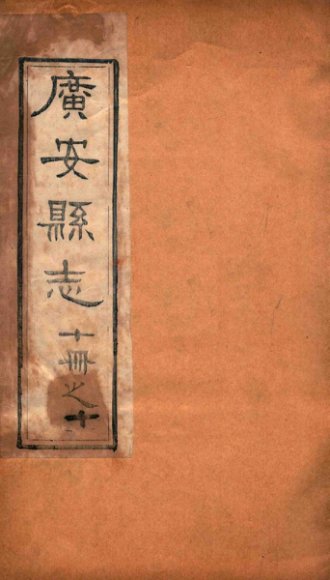 廣安縣志十冊之十